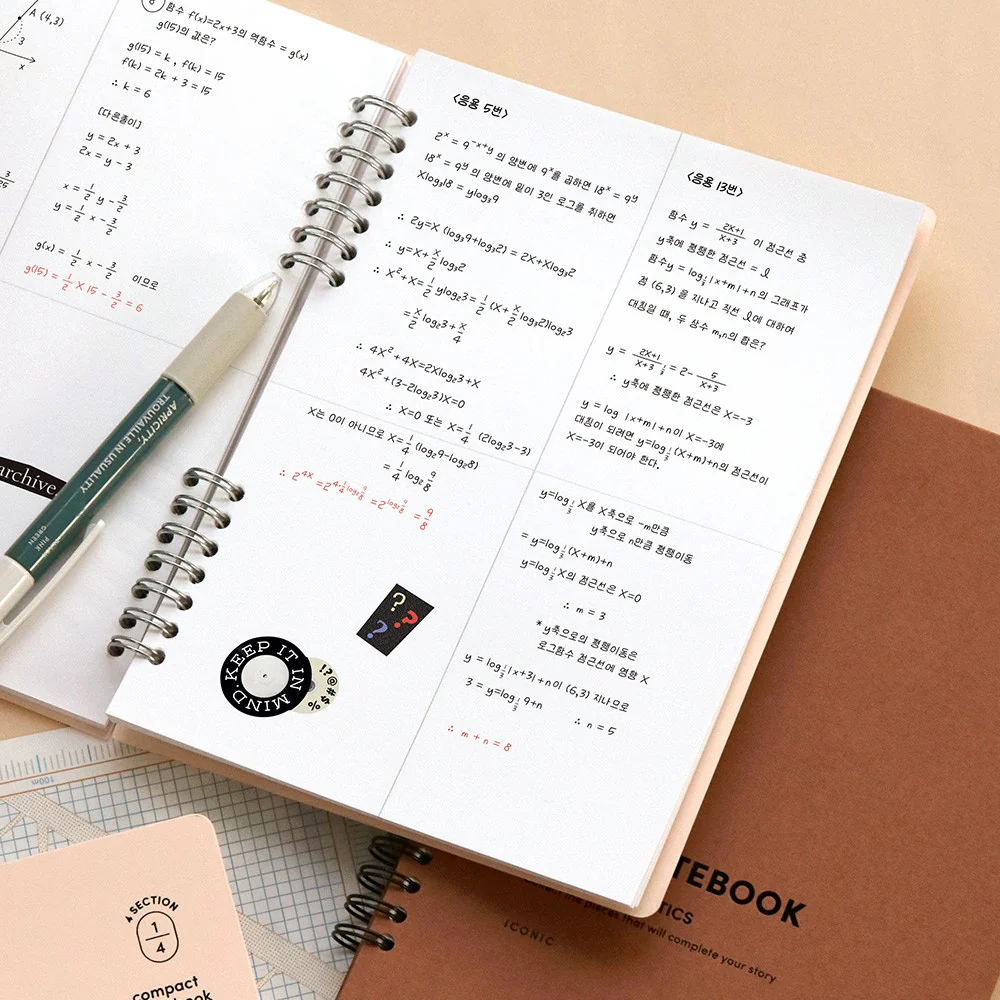 A (4,3)
3
x
8 함수 f(x)=2x+3의 역함수 = g(x)
g(15)의 값은?
g(15) = k , f(k) = 15
f(k) = 2k + 3 = 15
∴ k = 6
[다른풀이]
y = 2x + 3
2x = y - 3
x = 1/2 y - 3/2
y = 1/2 x - 3/2
g(x) = 1/2 x - 3/2 이므로
g(15) = 1/2 X 15 - 3/2 = 6
3/25
archive
APRICITY;
TROUVAILLE IN USUALITY
PINK
GREEN
<응용 5번>
2^x = 9^-x+y 의 양변에 9^x을 곱하면 18^x = 9^y
18^x = 9^y 의 양변에 밑이 3인 로그를 취하면
Xlog₃18 = ylog₃9
∴ 2y=X (log₃9+log₃2) = 2X+Xlog₃2
∴ y=X+ X/2 log₃2
∴ X²+X= 1/2 ylog₂3= 1/2 (X+ X/2 log₃2)log₂3
= X/2 log₂3+ X/4
∴ 4X²+4X=2Xlog₂3+X
4X²+(3-2log₂3)X=0
∴ X=0 또는 X= 1/4 (2log₂3-3)
X는 0이 아니므로 X= 1/4 (log₂9-log₂8)
= 1/4 log₂ 9/8
∴ 2^4X =2^4·1/4 log₂9/8 =2^log₂9/8 = 9/8
KEEP IT IN MIND.
!?@#$%
? ? ?
<응용 13번>
함수 y = 2X+1/X+3 이 점근선 중
y축에 평행한 점근선 = l
함수y = log 1/3 |x+m|+n의 그래프가
점 (6,3) 을 지나고 직선 l에 대하여
대칭일 때, 두 상수 m,n의 합은?
y = 2X+1/X+3 = 2- 5/X+3
∴ y축에 평행한 점근선은 X=-3
y = log 1/3 |x+m|+n이 X=-3에
대칭이 되려면 y=log 1/3 (X+m)+n의 점근선이
X=-3이 되어야 한다.
y=log 1/3 X를 X축으로 -m만큼
y축으로 n만큼 평행이동
= y=log 1/3 (X+m)+n
y=log 1/3 X의 점근선은 X=0
∴ m = 3
* y축으로의 평행이동은
로그함수 점근선에 영향 X
y = log 1/3 |x+3|+n이 (6,3) 지나므로
3 = y=log 1/3 9+n
∴ n = 5
∴ m + n = 8
100m
SECTION
1/4
compact
TEBOOK
TICS
pieces that will complete your story
ICONIC